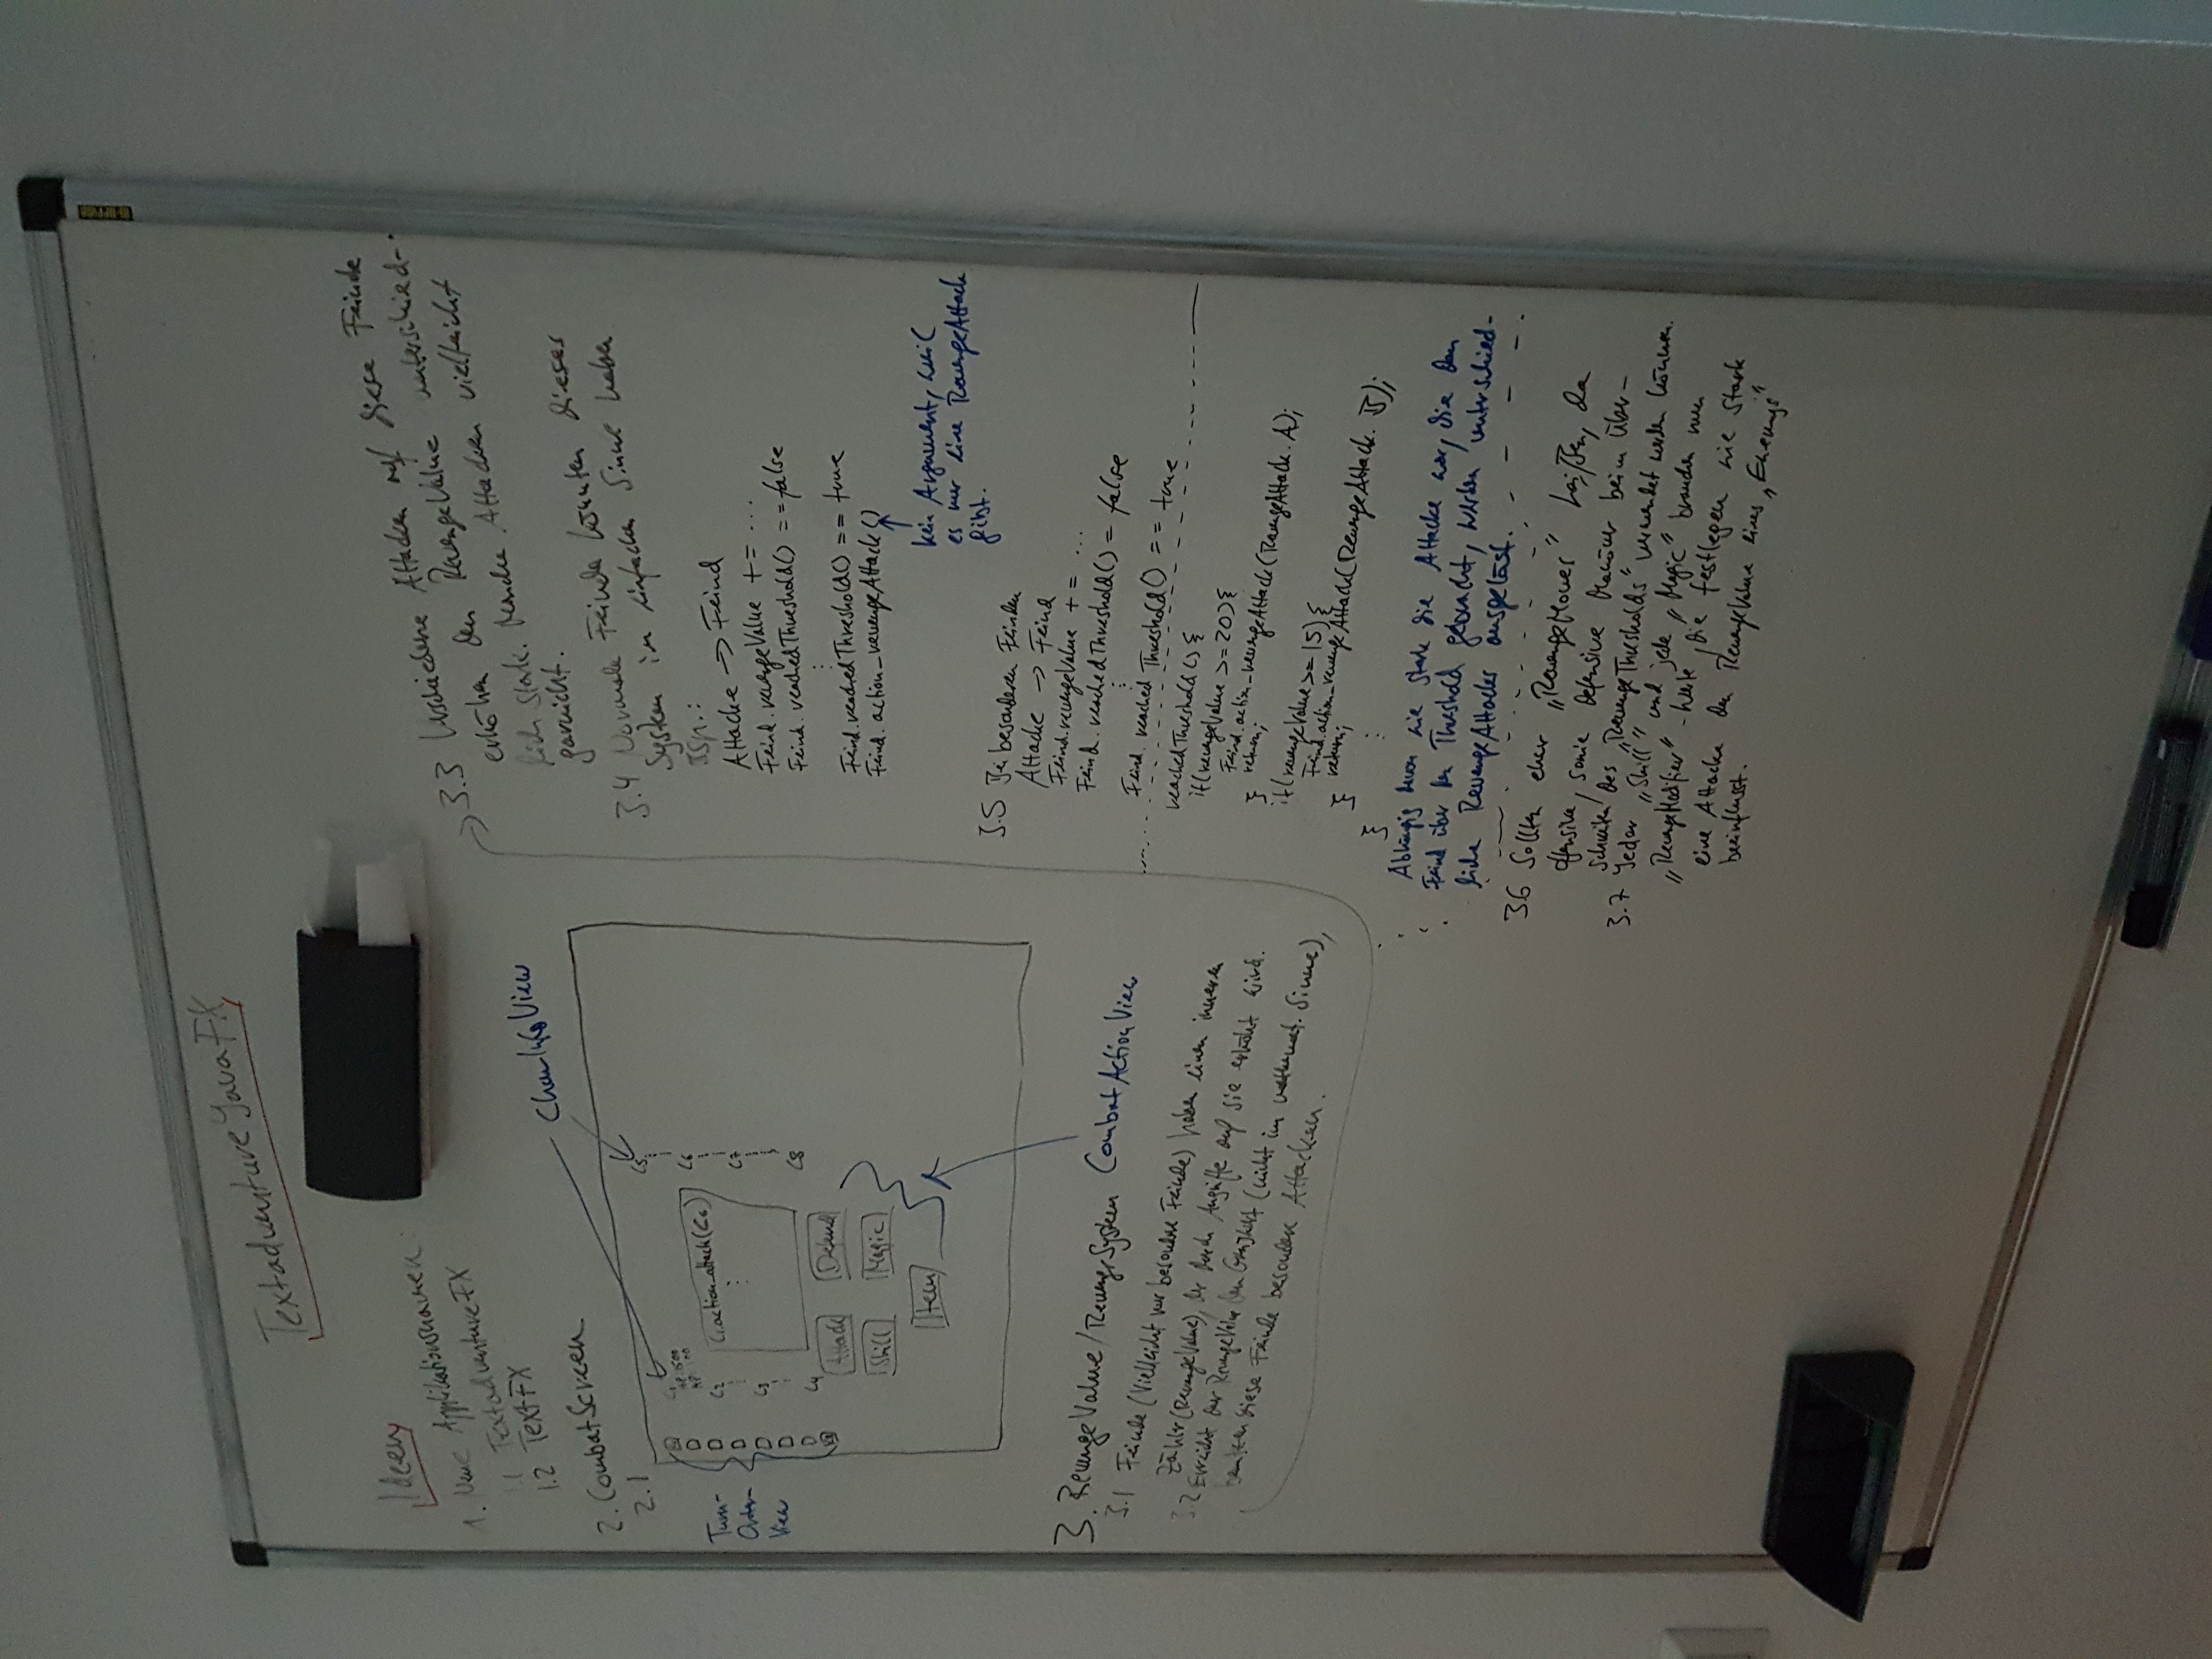 Textadventure JavaFX
Ideen
1. Neue Applikationsnamen
1.1 TextadventureFX
1.2 TextFX
2. CombatScreen
2.1
CharInfoView
Turn-
Order-
View
C1
HP: 1500
MP: 100
C2
C3
C4
C1.action_attack(C6)
C5
C6
C7
C8
Attack
Defend
Skill
Magic
Item
CombatActionView
3. RevengeValue/RevengeSystem
3.1 Feinde (Vielleicht nur besondere Feinde) haben einen inneren
Zähler (RevengeValue), der durch Angriffe auf sie erhöht wird.
3.2 Erreicht der RevengeValue den Grenzwert (nicht im mathemat. Sinne),
benutzen diese Feinde besondere Attacken.
3.3 Verschiedene Attacken auf diese Feinde
erhöhen den RevengeValue unterschied-
lich stark. Manche Attacken vielleicht
garnicht.
3.4 Normale Feinde könnten dieses
System im einfachen Sinne haben
Bsp.:
Attacke -> Feind
Feind.revengeValue += ...
Feind.reachedThreshold() == false
Feind.reachedThreshold() == true
Feind.action_revengeAttack()
kein Argument, weil
es nur eine RevengeAttack
gibt.
3.5 Bei besonderen Feinden
Attacke -> Feind
Feind.revengeValue += ...
Feind.reachedThreshold() = false
Feind.reachedThreshold() == true
reachedThreshold() {
if(revengeValue >= 20) {
Feind.action_revengeAttack(RevengeAttack.A);
return;
}
if(revengeValue >= 15) {
Feind.action_revengeAttack(RevengeAttack.B);
return;
}
}
Abhängig davon wie stark die Attacke war, die den
Feind über den Threshold gebracht, werden unterschied-
liche RevengeAttacks ausgelöst.
3.6 Sollten eher „RevengeMoves“ heißen, da
offensive, sowie defensive Manöver beim Über-
schreiten des „RevengeThresholds“ verwendet werden können.
3.7 Jeder „Skill“ und jede „Magic“ brauchen nun
„RevengeModifier“-Werte, die festlegen wie stark
eine Attacke den RevengeValue eines „Enemys“
beeinflusst.